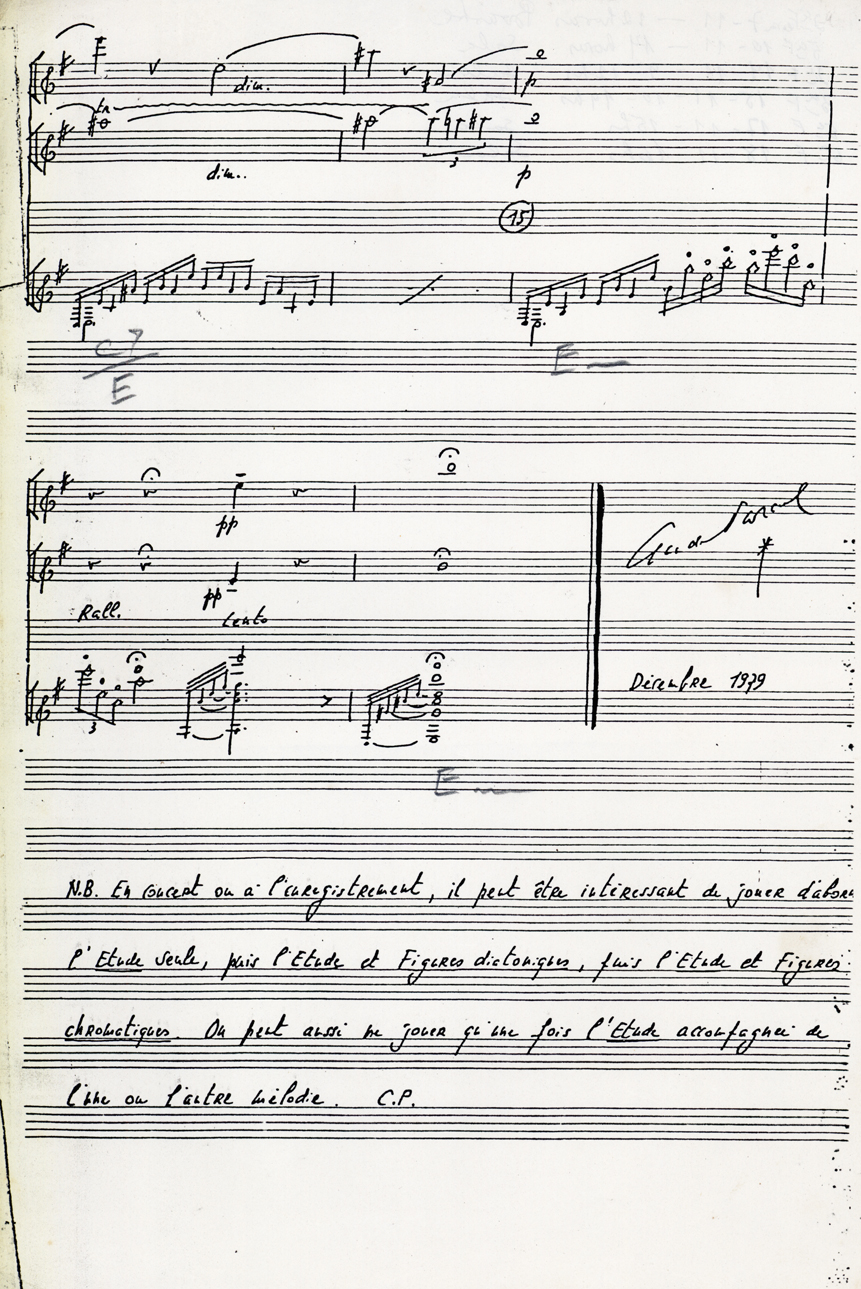 tr
dim.
dim..
p
p
15
C7
E
E
pp
pp
Rall.
Lento
Décembre 1979
3
3
E
N.B. En concert ou à l'enregistrement, il peut être intéressant de jouer d'abord
l'Etude seule, puis l'Etude et Figures diatoniques, puis l'Etude et Figures
chromatiques. On peut aussi ne jouer qu'une fois l'Etude accompagnée de
l'une ou l'autre mélodie. C.P.